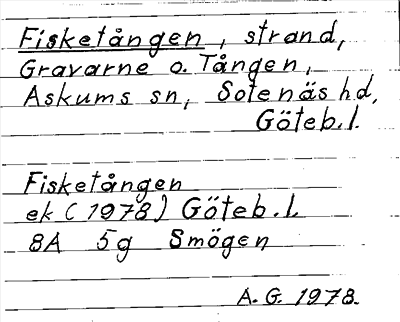 Fisketången, strand,
Gravarne o. Tången,
Askums sn, Sotenäs hd,
Göteb. l.
Fisketången
ek (1978) Göteb. l.
8A 5g Smögen
A. G. 1978.